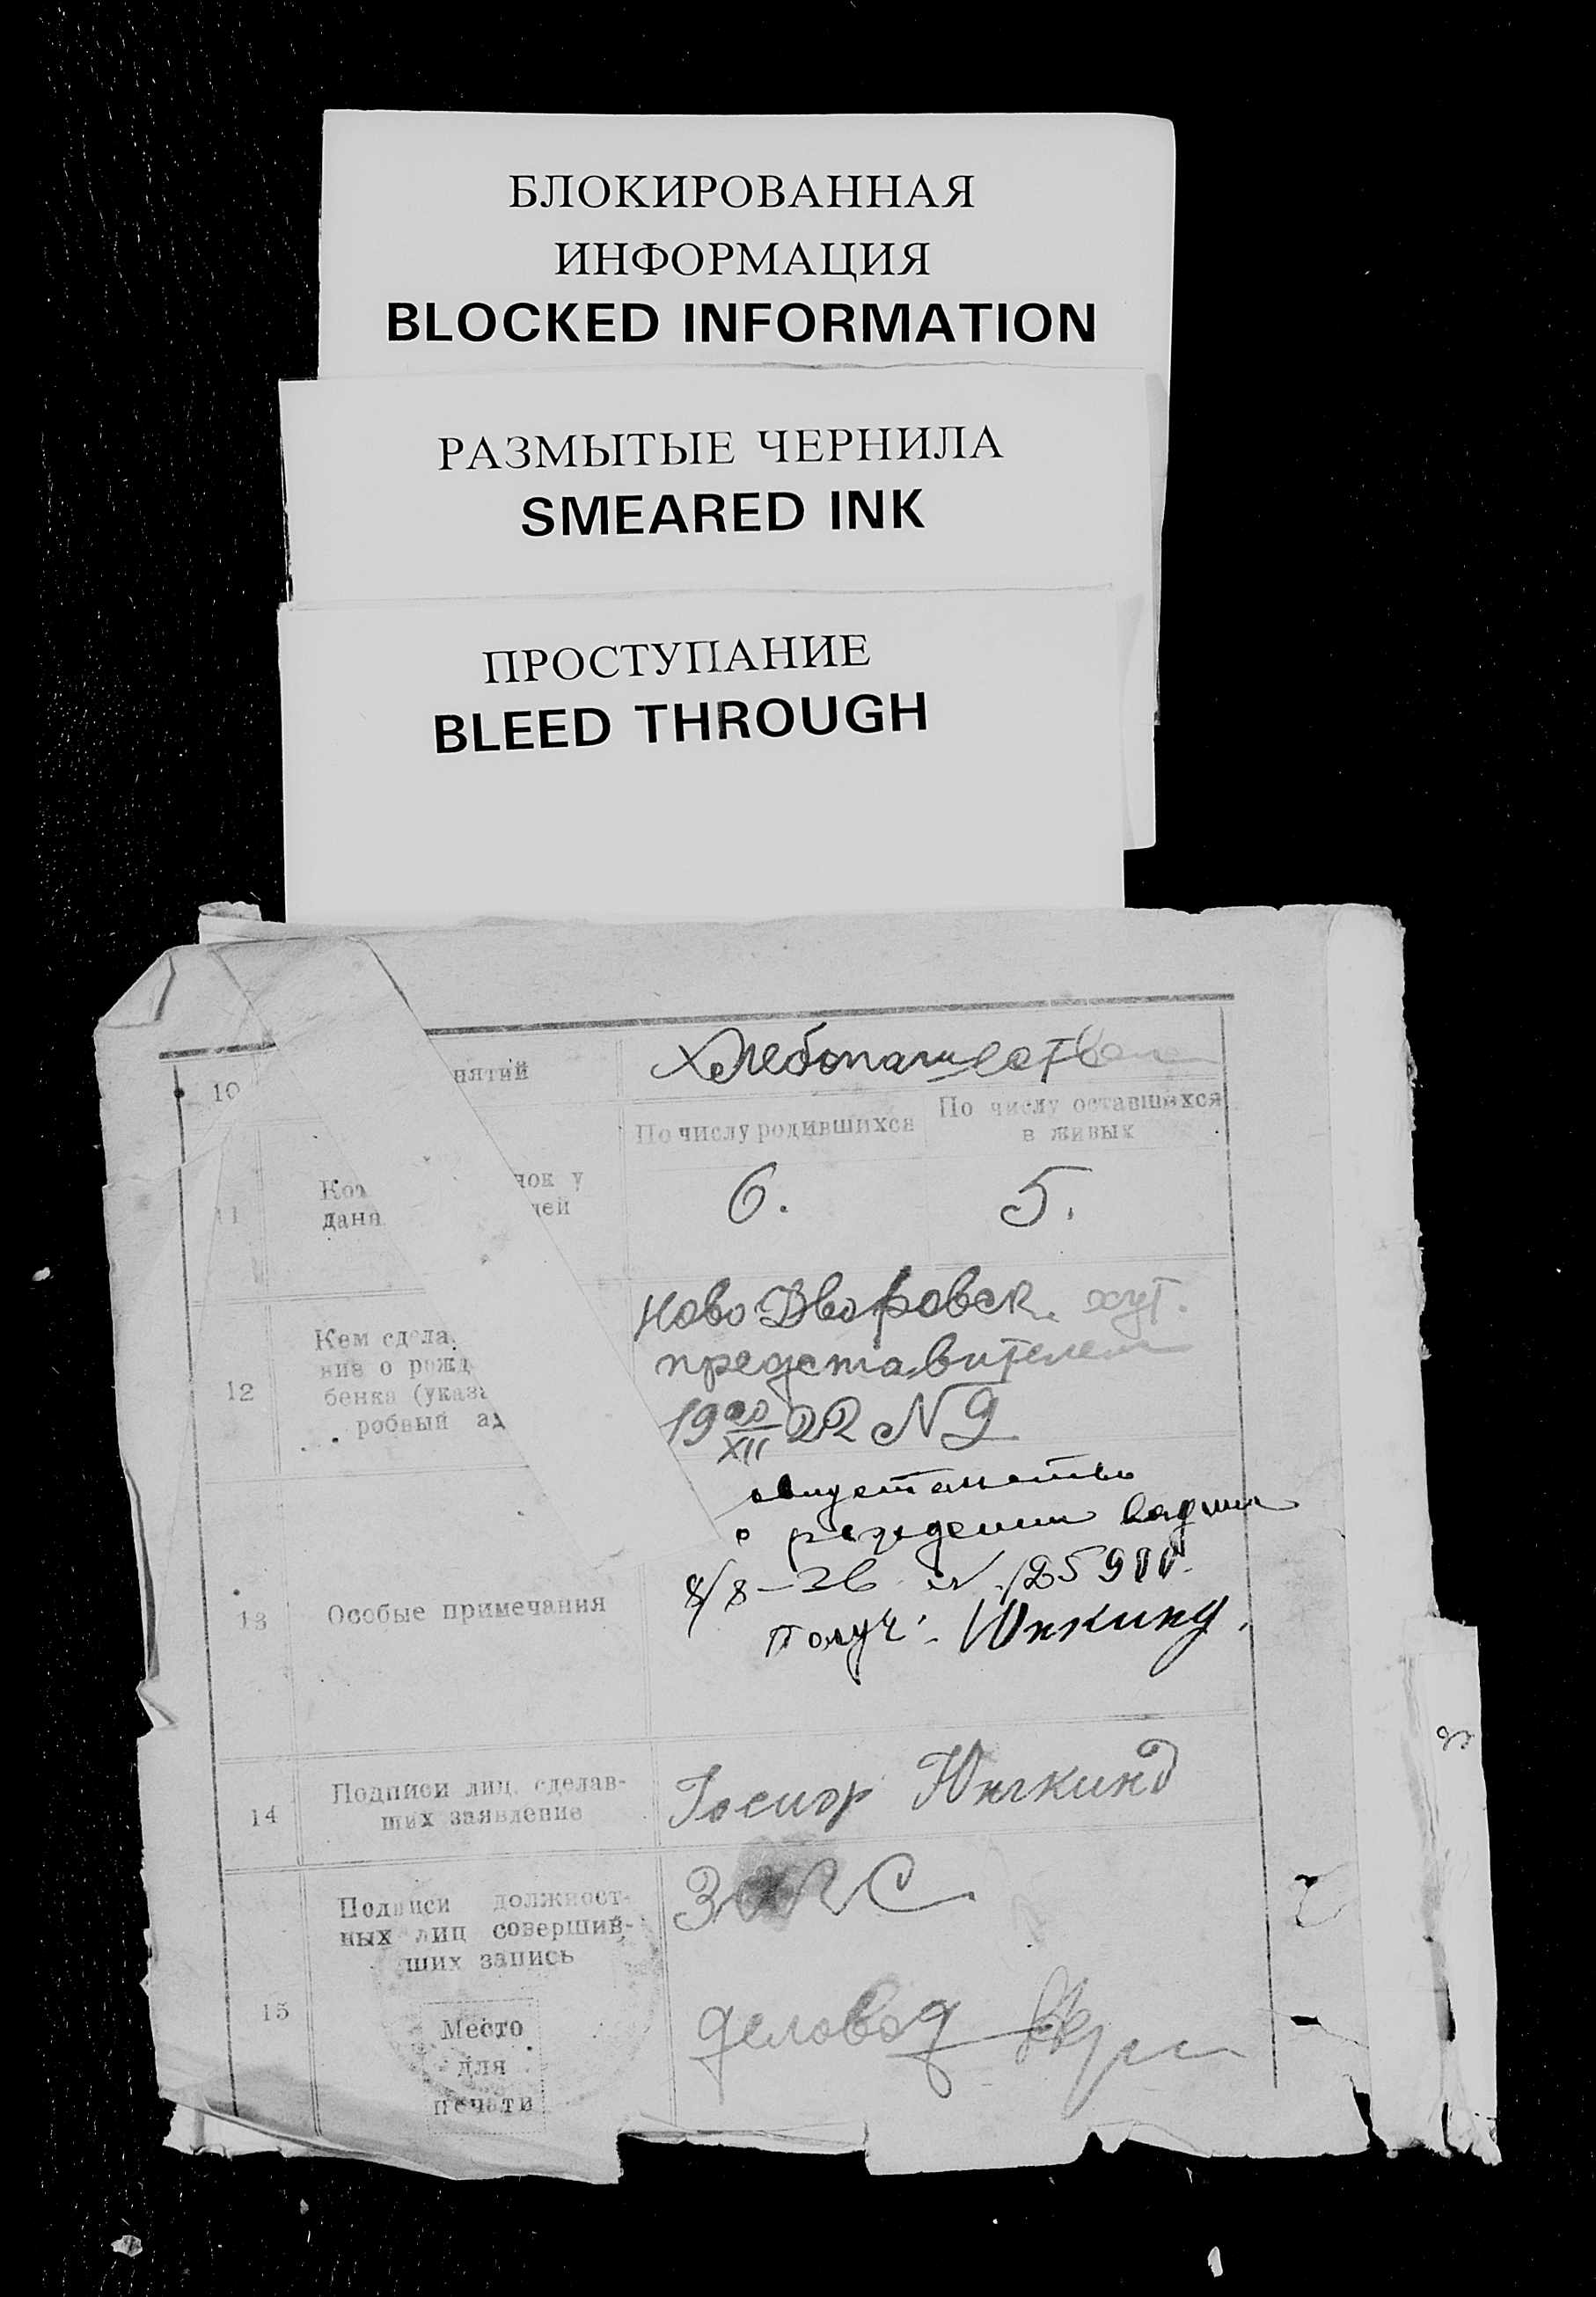 БЛОКИРОВАННАЯ
ИНФОРМАЦИЯ
BLOCKED INFORMATION
РАЗМЫТЫЕ ЧЕРНИЛА
SMEARED INK
ПРОСТУПАНИЕ
BLEED THROUGH
10
нятий
хлебопашество
По числу родившихся
По числу оставшихся
в живых
11
нок у
дан
ей
6.
5.
12
Кем сдела
ние о рожд
бенка (указа
робный ад
Ново Дворовск. хут.
представителем
19 20/XII 22 N 9
13
Особые примечания
о рождении выдан
8/8-26 N 125900
Получ. Юнкинд.
14
Подписи лиц, сделав-
ших заявление
Иосиф Юнкинд
15
Подписи должност-
ных лиц совершив-
ших запись
Место
для
печати
ЗАГС
деловод